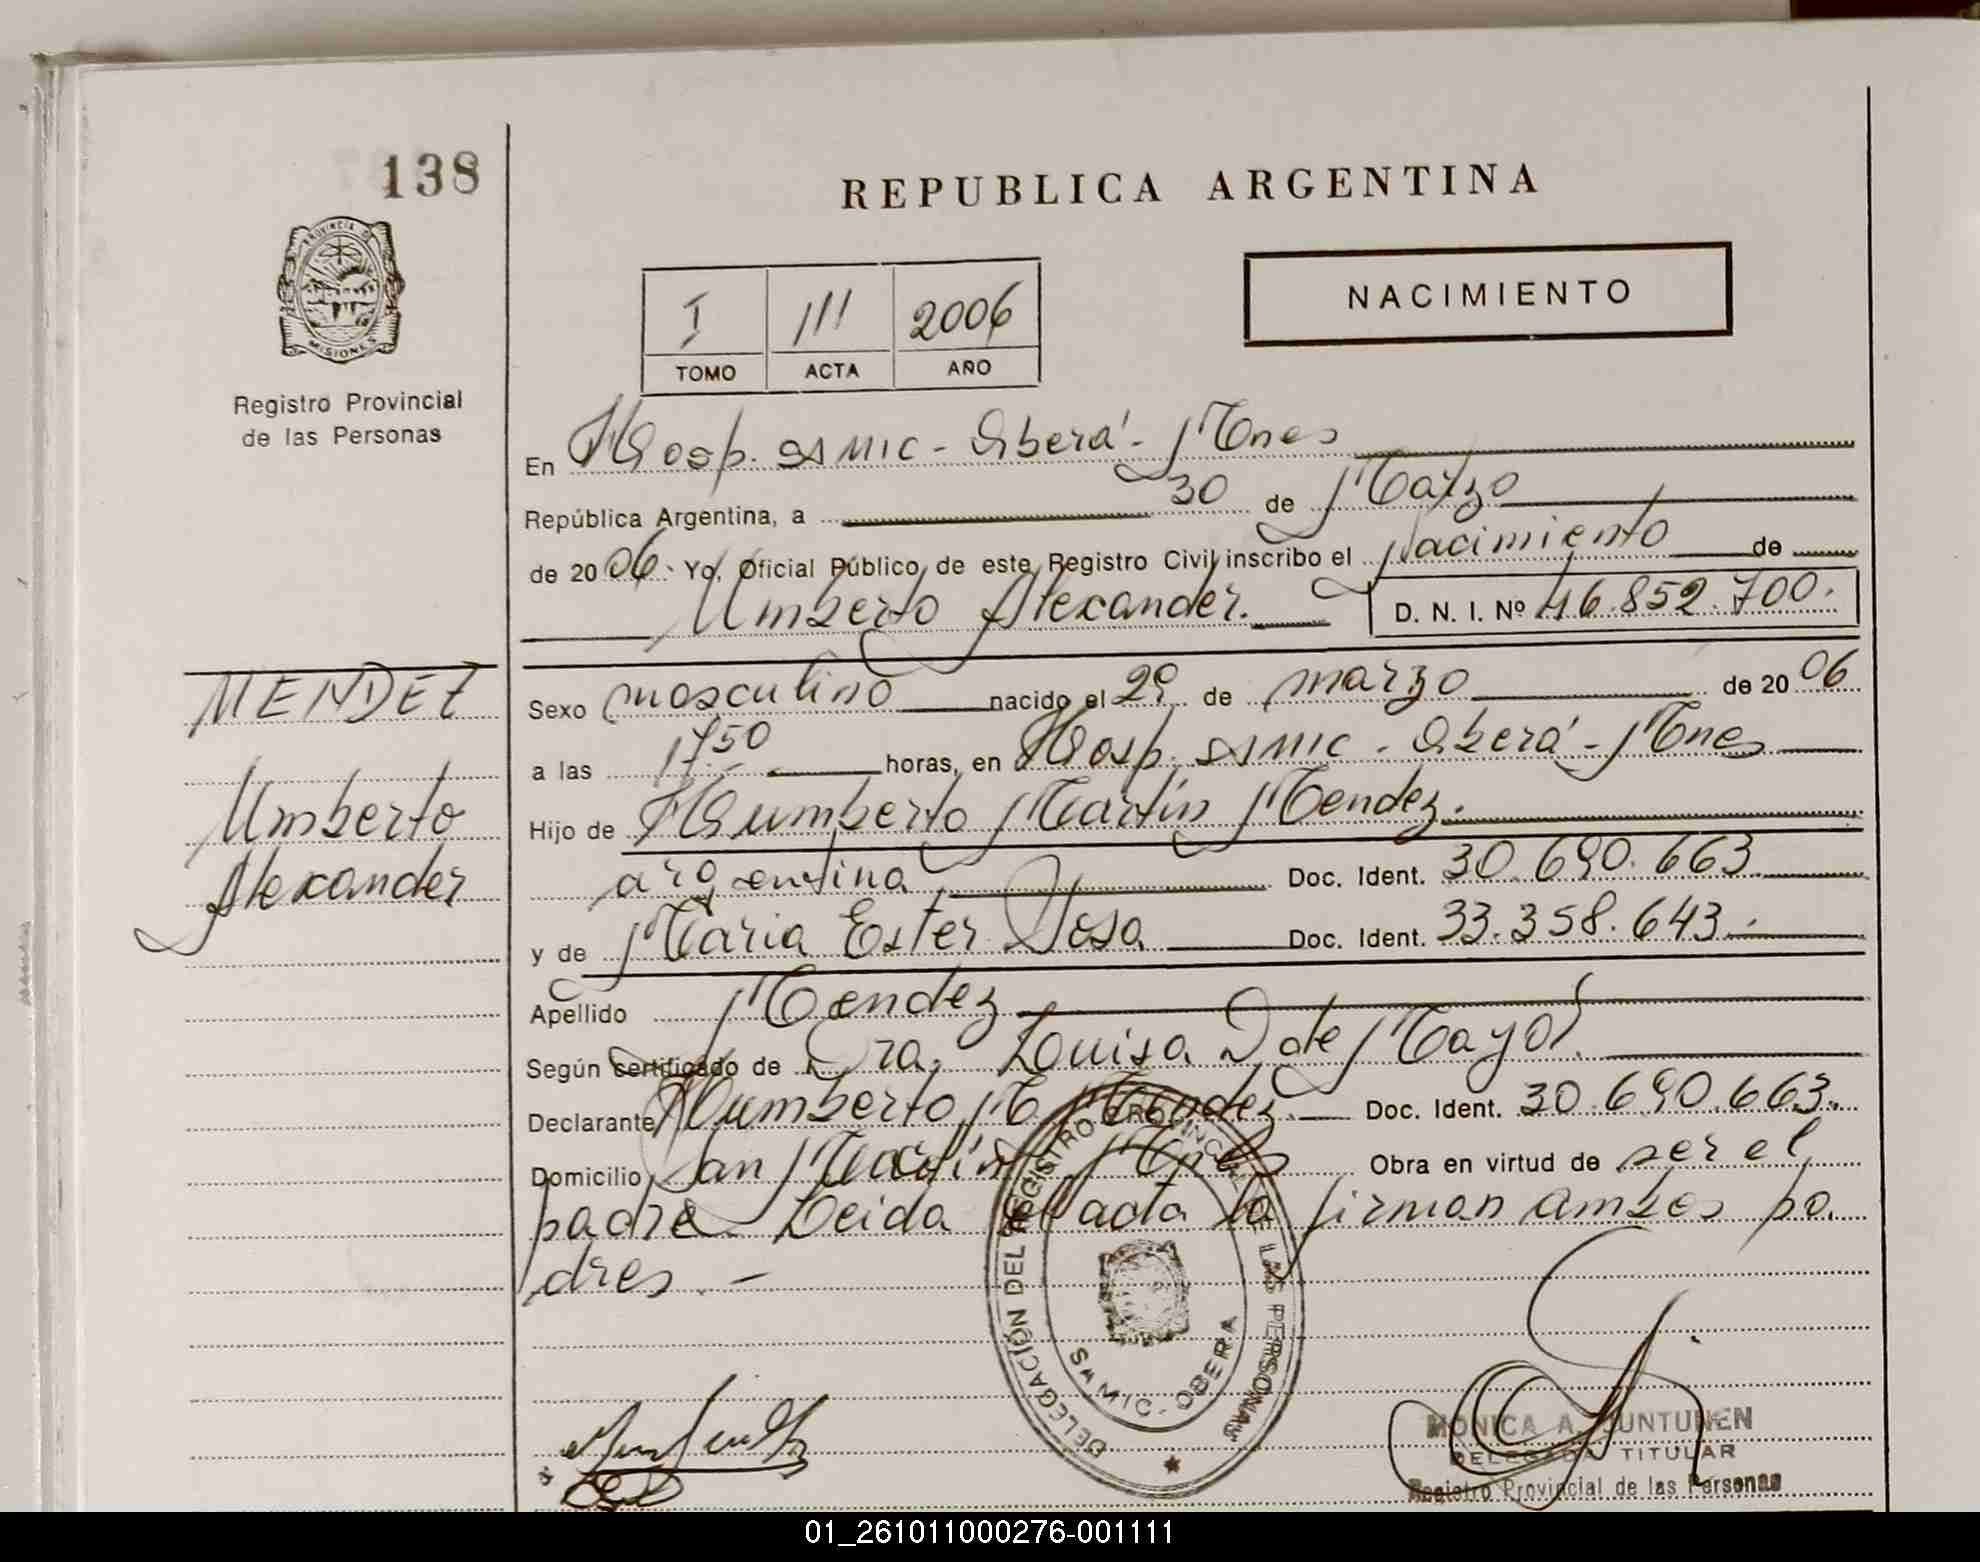 138
REPUBLICA ARGENTINA
PROVINCIA DE
MISIONES
Registro Provincial
de las Personas
I 111 2006
TOMO ACTA AÑO
NACIMIENTO
En Hosp. SAMIC - Oberá - Mnes
República Argentina, a 30 de Marzo
de 2006. Yo, Oficial Público de este Registro Civil inscribo el Nacimiento de
Umberto Alexander. D. N. I. Nº 46.852.700.
MENDEZ
Umberto
Alexander
Sexo masculino nacido el 29 de marzo de 2006
a las 17.50 horas, en Hosp. SAMIC - Oberá - Mnes
Hijo de Humberto Martín Mendez.
argentina Doc. Ident. 30.690.663.
y de María Ester Sosa Doc. Ident. 33.358.643.-
Apellido Mendez
Según certificado de Dra. Luisa D de Mayol
Declarante Humberto M. Mendez. Doc. Ident. 30.690.663.
Domicilio San Martín Mnes Obra en virtud de ser el
padre. Leida el acta la firman ambos pa
dres. -
DELEGACIÓN DEL REGISTRO PROVINCIAL DE LAS PERSONAS
SAMIC - OBERA
MONICA A. JUNTUNEN
DELEGADA TITULAR
Registro Provincial de las Personas
01_261011000276-001111